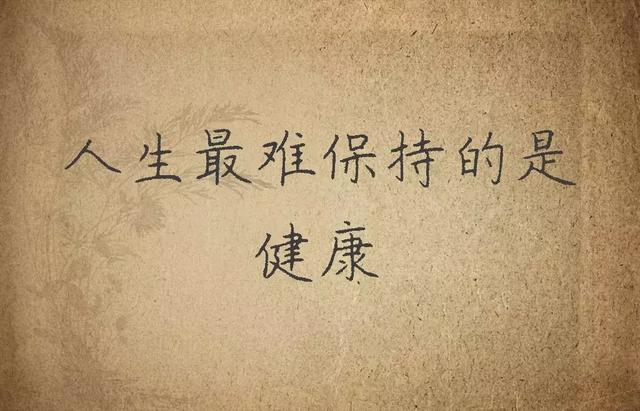 人生最难保持的是
健康